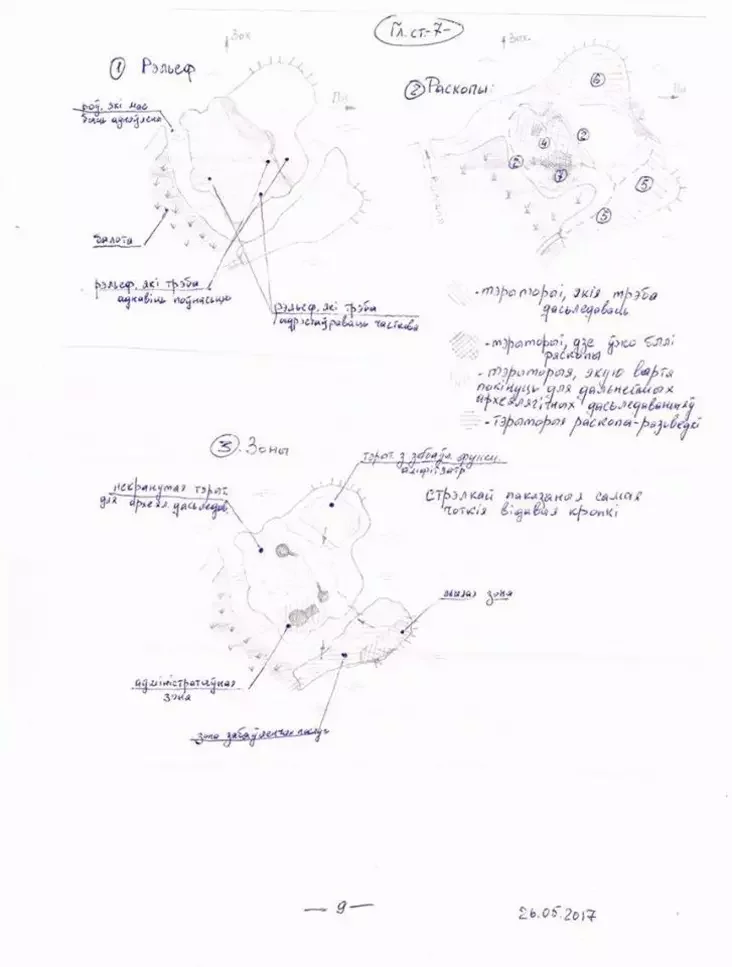 Гл. ст.-7-
↑ Зах.
① Рэльеф
роў, які мае
быць адноўлены
Пн
балота
рэльеф, які трэба
аднавіць поўнасцю
рэльеф, які трэба
адрэстаўраваць часткова
↑ Зах.
② Раскопы:
Пн
6
2
4
2
7
5
5
- тэраторыі, якія трэба
дасьледаваць
- тэраторыі, дзе ўжо былі
раскопы
- тэраторыя, якую варта
пакінуць для дальнейшых
археялягічных дасьледаванняў
- Тэраторыя раскопа-разьведкі
③. Зоны
некранутая тэрыт.
для археял. дасьледав.
амфітэатр
Стрэлкай паказаная самыя
чоткія відавыя кропкі
жылая зона
адміністратыўная
зона
зона
— 9 —
26.05.2017